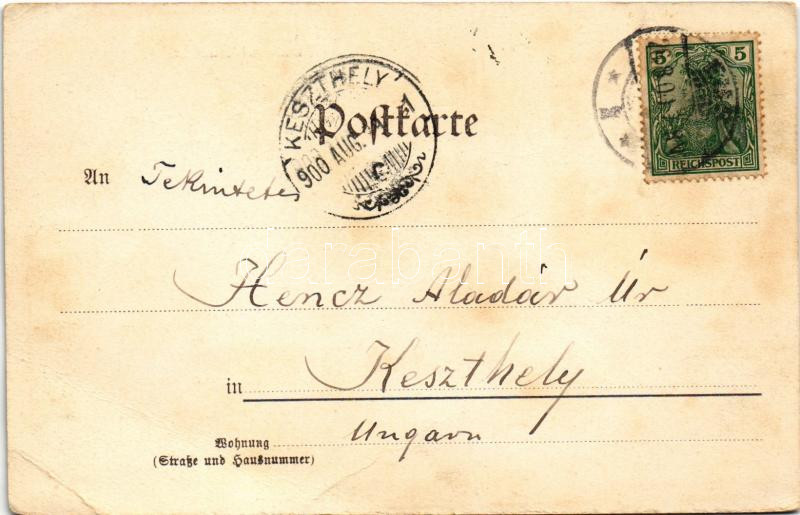 KESZTHELY
900 AUG.
5 5
REICHSPOST
Postkarte
An Tekintetes
Hencz Aladár Úr
in Keszthely
Ungarn
Wohnung
(Straße und Hausnummer)
darabanth